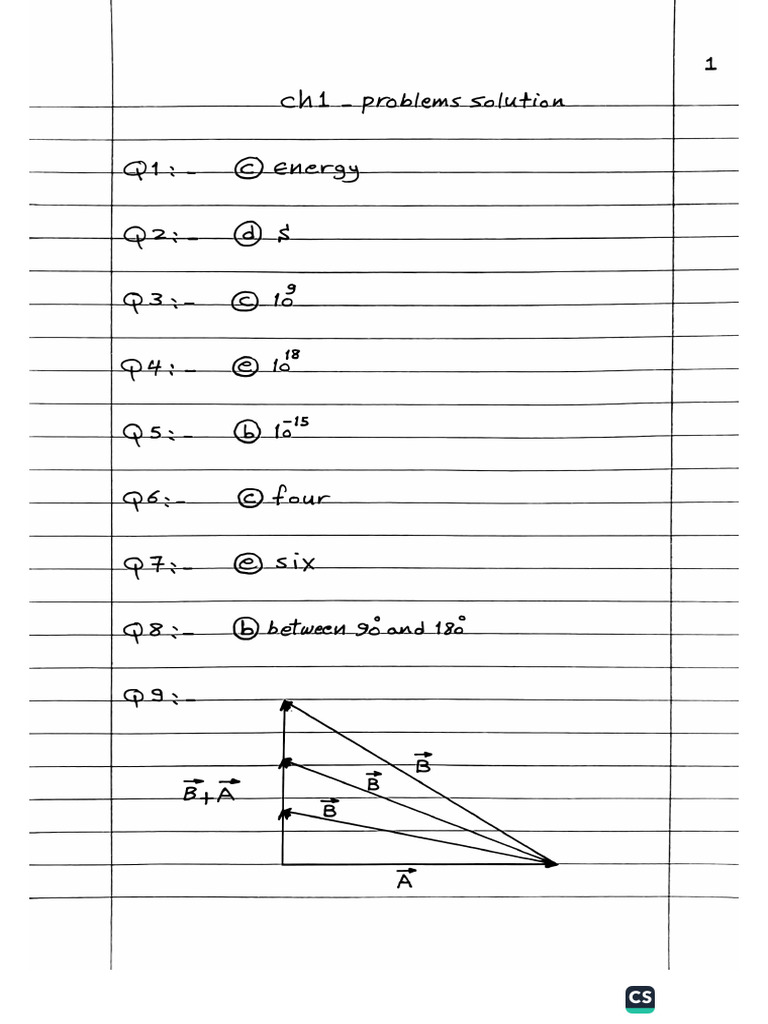 1
ch1 - problems solution
Q1:- ⓒ energy
Q2:- ⓓ S
Q3:- ⓒ 10⁹
Q4:- ⓔ 10¹⁸
Q5:- ⓑ 10⁻¹⁵
Q6:- ⓒ four
Q7:- ⓔ six
Q8:- ⓑ between 90° and 180°
Q9:-
B⃗
B⃗
B⃗+A⃗
B⃗
A⃗
CS